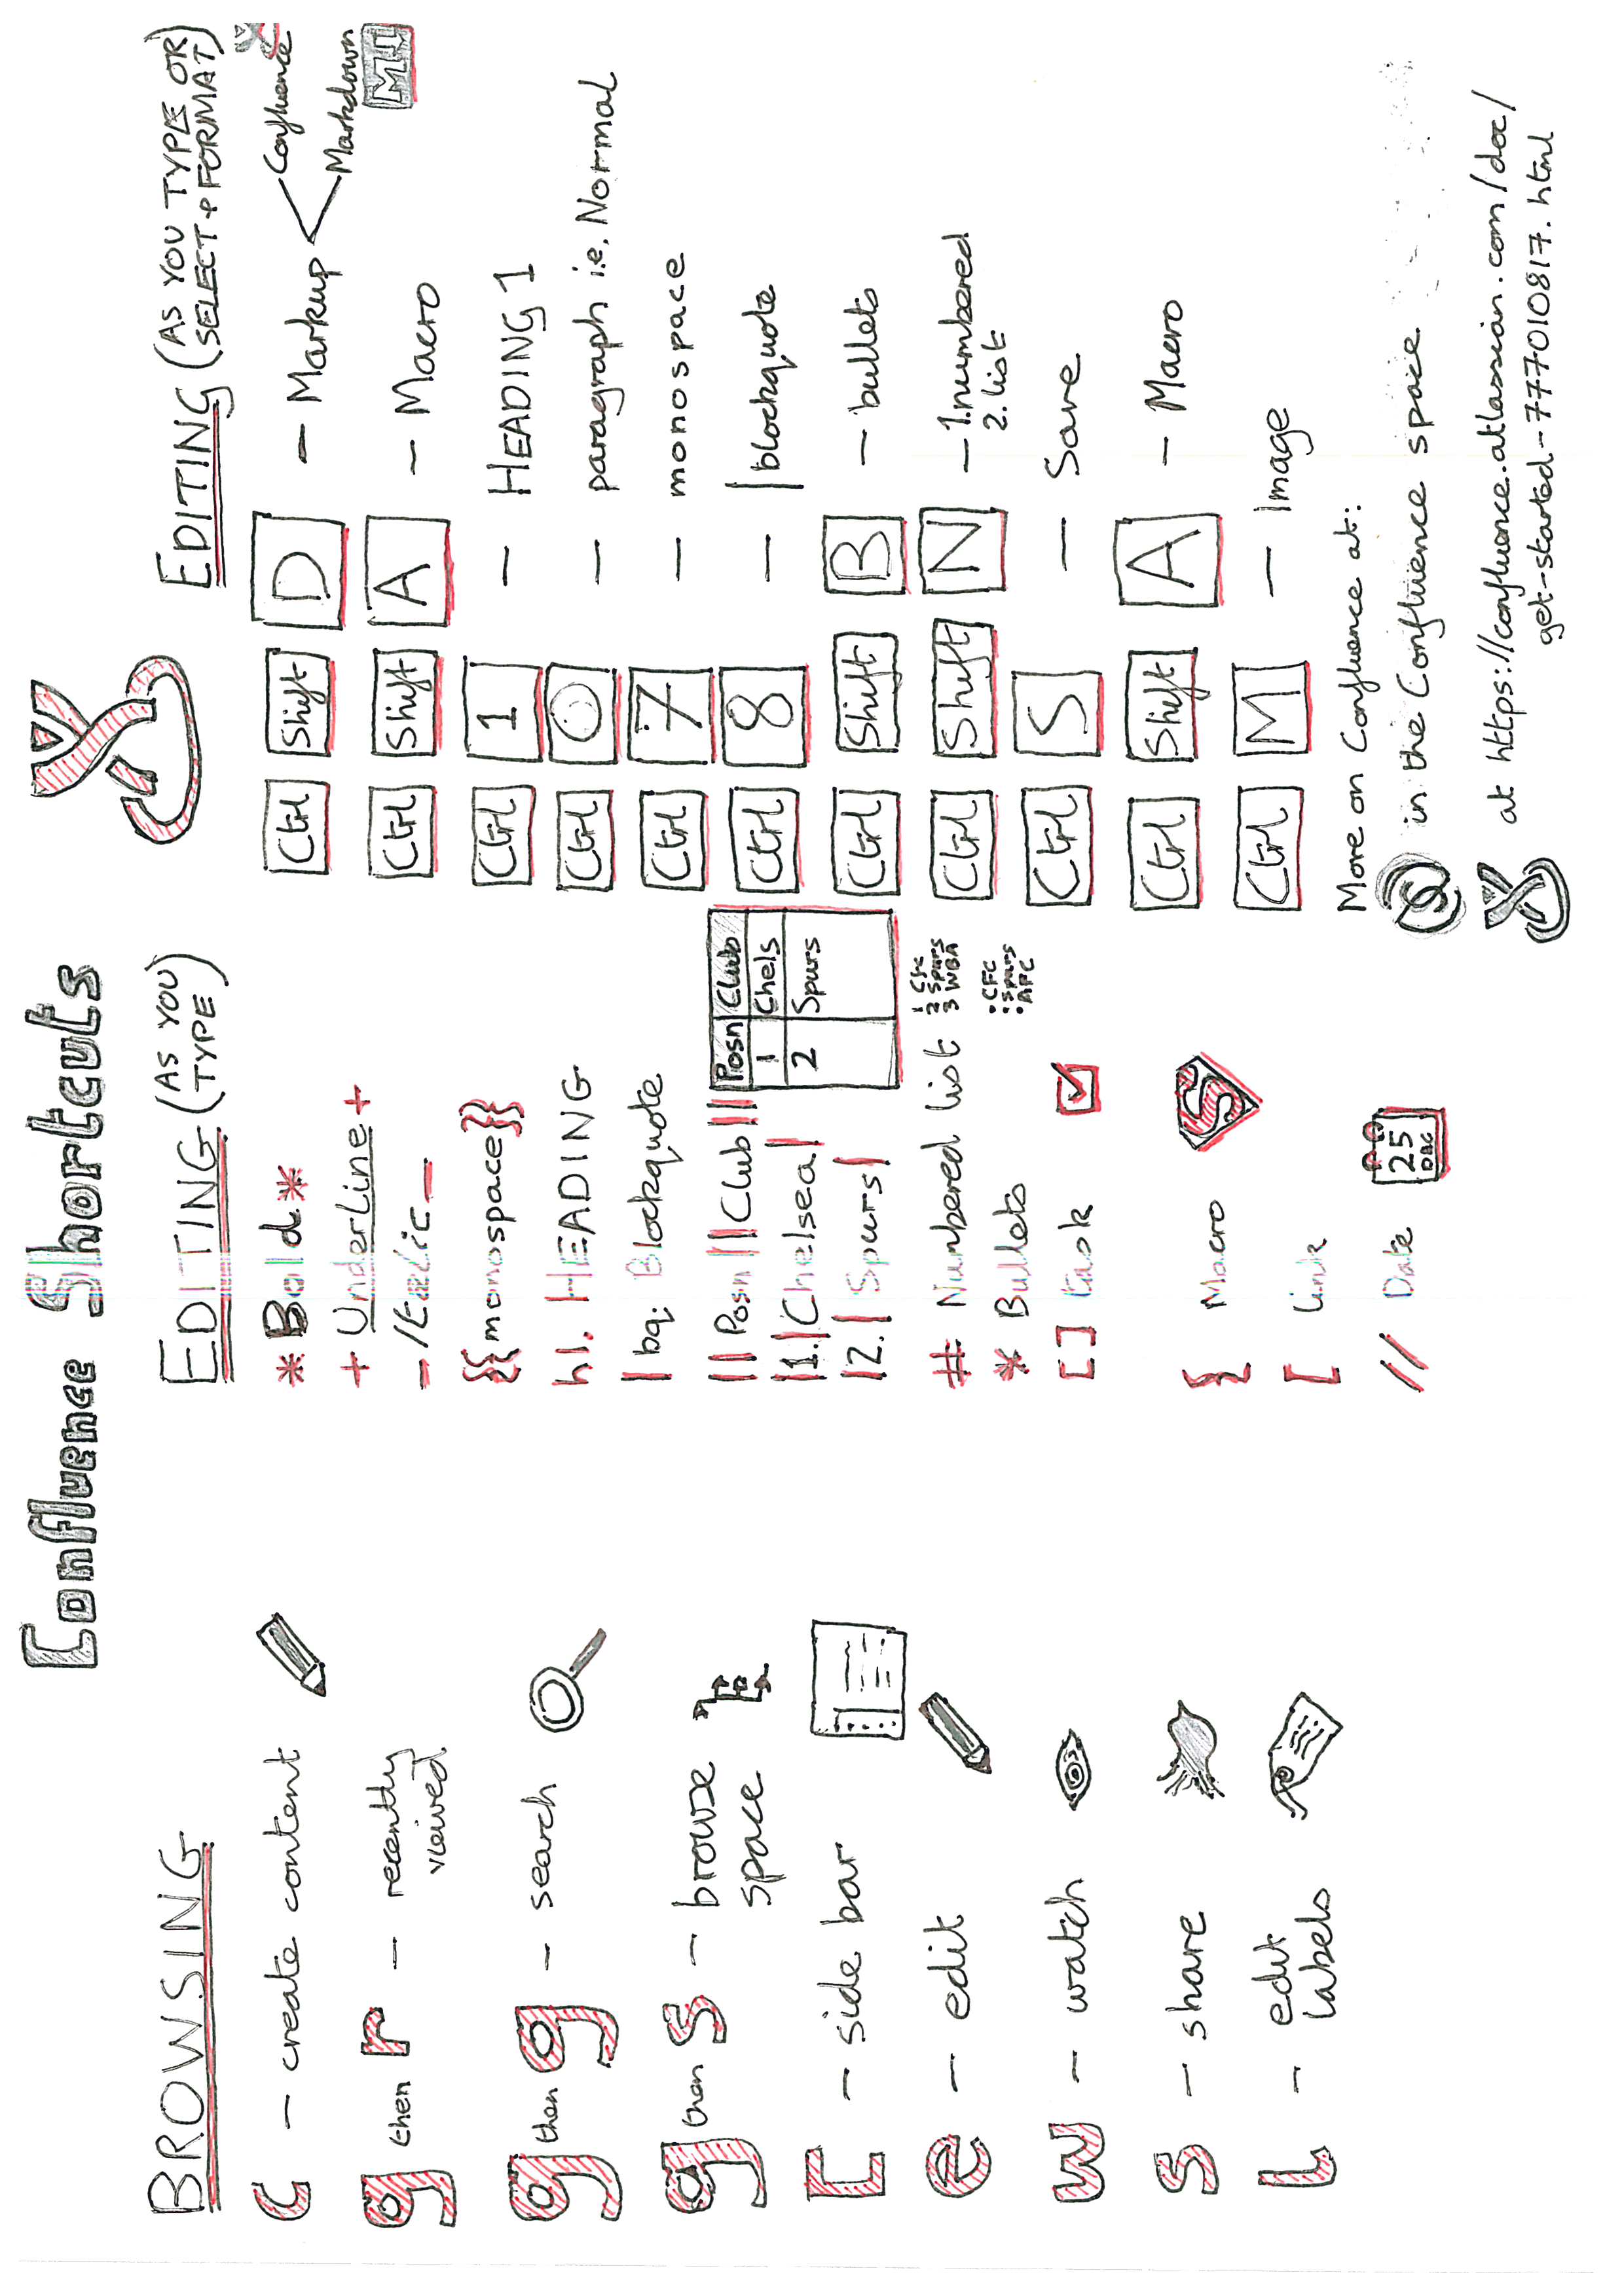 Confluence Shortcuts
BROWSING
c - create content
g then r - recently
viewed
g then g - search
g then s - browse
space
[ - side bar
e - edit
w - watch
s - share
l - edit
labels
EDITING (AS YOU
TYPE)
*Bold*
+Underline+
_Italic_
{{monospace}}
h1. HEADING
| bq. Blockquote
|| Posn || Club ||
|1.| Chelsea |
|2.| Spurs |
Posn Club
1 Chels
2 Spurs
# Numbered list
1 Cfc
2 Spurs
3 WBA
* Bullets
• CFC
• Spurs
• AFC
[] task
{ Macro
S
[ link
// Date
25
DEC
EDITING (AS YOU TYPE OR
SELECT + FORMAT)
Ctrl Shift D - Markup
Confluence
Markdown
M↓
Ctrl Shift A - Macro
Ctrl 1 - HEADING 1
Ctrl 0 - paragraph i.e. Normal
Ctrl 7 - monospace
Ctrl 8 - |blockquote
Ctrl Shift B - bullets
Ctrl Shift N - 1.numbered
2. list
Ctrl S - Save
Ctrl Shift A - Macro
Ctrl M - Image
More on Confluence at:
in the Confluence space
at https://confluence.atlassian.com/doc/
get-started-777010817.html